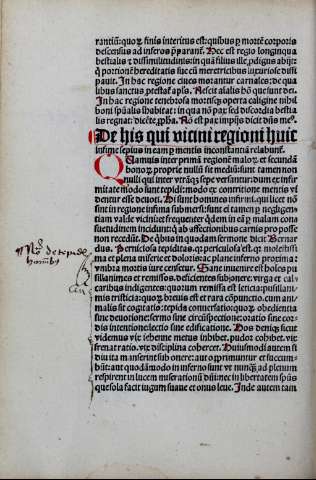 rantiũ: quoꝝ finis interitus est: quibus ꝑ mortẽ corporis
descensus ad inferos p̄paratur. Hec est regio longinqua
bestialis et dissimilitudinis: in quã filius ille ꝓdigus abijt:
qui portionẽ hereditatis sue cũ meretricibus luxuriose dissi
pauit. In hac regione ciues morantur carnales: de qua
libus sanctus prestat aꝑs. Nescit alialis hõ que sunt dei.
In hac regione tenebrosa mortis operta caligine nihil
boni spũalis habitat: in qua nõ pax sed discordia bestia
lis regnat: dicẽte ꝓpha. Nõ est pax impijs dicit dñs.
De his qui vicini regioni huic
infime sepius in eam ꝑ mentis inconstantiã relabunt̃.
Quamuis inter primã regionẽ maloꝝ et secundã
bonoꝝ proprie nullũ sit mediũ: sunt tamen non
nulli qui inter vtrãqꝫ sepe versantur: dum ex infir
mitate modo sunt tepidi: modo ex contritione mentis vi
dentur esse deuoti. Hi sunt homines infirmi. qui licet nõ
sint in regione infima submersi: sunt ei tamen ꝑ negligen
tiam valde vicini: et frequenter qdem in eã ꝑ malam cons
suetudinem incidunt: qui ab affectionibus carnis pro posse
non recedũt. De quibus in quodam sermone dicit Bernar
dus. Perniciosa tepiditas. qui periculosa est. qui molestissi
ma et plena miserie et doloris: ac plane inferno proxima:
vmbra mortis iure censetur. Sane inuenire est hoies pu
sillanimes et remissos. deficientes sub onere: virga et cal
caribus indigentes: quorum remissa est leticia: pusillani
mis tristicia: quoꝝ breuis est et rara cõpunctio. cum ani
malis sit cogitatio: tepida conuersatio: quoꝝ obedientia
sine deuotione: sermo sine circũspectione: oratio sine cor
dis intentione: lectio sine edificatione. Hos deniqꝫ sicut
videmus vix iehenne metus inhibet. pudor cohibet. vix
frenat ratio. vix disciplina cohercet. Huiusmodi autem si
diu ita manserint sub onere: aut opprimuntur et succum
bũt: aut quodãmodo in inferno sunt vt nunqꝫ ad plenum
respirent in lucem miserationũ dñi: nec in libertatem spũs
que sola facit iugum suaue et onus leue. Inde autem tam